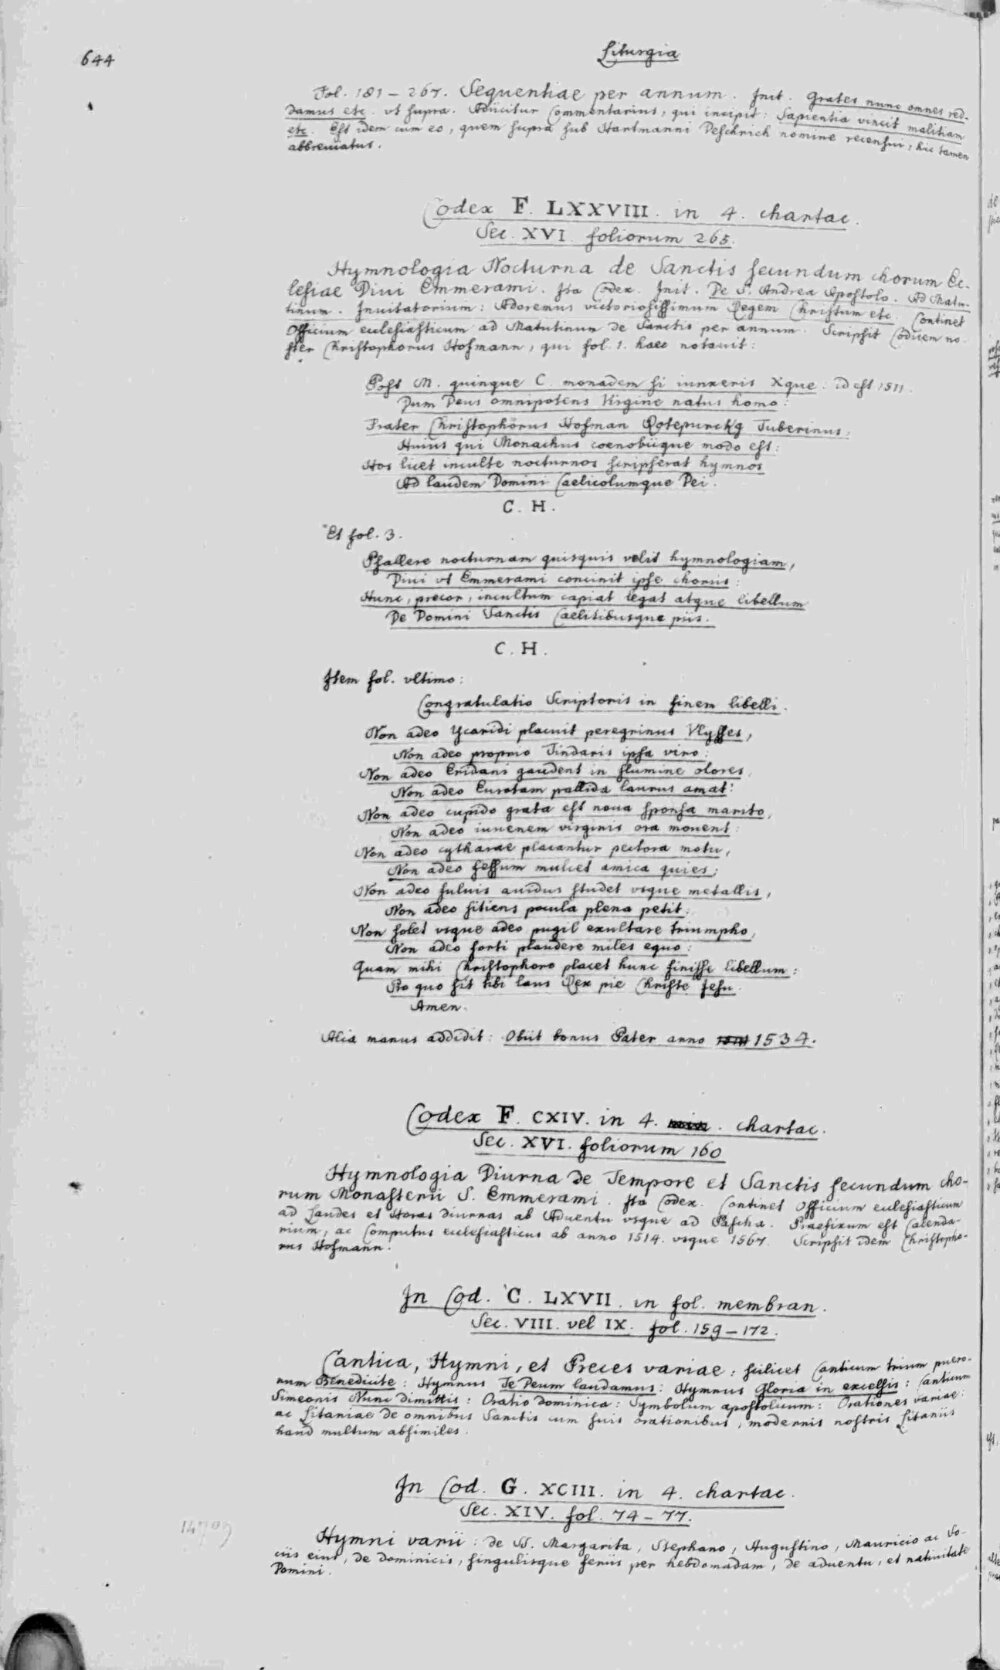 644
Liturgia
Fol. 181 – 267. Sequentiae per annum. Init. Grates nunc omnes red-
damus etc. vt supra. Adiicitur Commentarius, qui incipit: Sapientia vincit malitiam
etc. Est idem cum eo, quem supra sub Hartmanni Peschrich nomine recensui, hic tamen
abbreviatus.
Codex F. LXXVIII. in 4. chartac.
Sec. XVI. foliorum 265.
Hymnologia Nocturna de Sanctis secundum chorum Ec-
lesiae Divi Emmerami. Ita Codex. Init. De S. Andrea Apostolo. Ad Matu-
tinum. Inuitatorium: Adoremus victoriosissimum Regem Christum etc. Continet
Officium ecclesiasticum ad Matutinum de Sanctis per annum. Scripsit Codicem no-
ster Christophorus Hofmann, qui fol. 1. haec notauit:
Post M. quinque C. monadem si iunxeris Xque: id est 1511.
Dum Deus omnipotens Virgine natus homo:
Frater Christophorus Hofman Rotepurckg Tuberinus,
Huius qui Monachus coenobiique modo est:
Hos licet inculte nocturnos scripserat hymnos
Ad laudem Domini Caelicolumque Dei.
C. H.
Et fol. 3.
Psallere nocturnam quisquis velit hymnologiam,
Diui vt Emmerami concinit ipse chorus:
Hunc, precor, incultum capiat legat atque libellum
De Domini Sanctis Caelitibusque piis.
C. H.
Item fol. vltimo:
Congratulatio Scriptoris in finem libelli.
Non adeo Ycaridi placuit peregrinus Vlysses,
Non adeo proprio Tindaris ipsa viro:
Non adeo Eridani gaudent in flumine olores,
Non adeo Eurotam pallida laurus amat:
Non adeo cupido grata est noua sponsa marito,
Non adeo iuuenem virginis ora mouent:
Non adeo cytharae placantur pectora motu,
Non adeo fessum mulcet amica quies:
Non adeo fuluis auidus studet vsque metallis,
Non adeo sitiens pocula plena petit:
Non solet vsque adeo pugil exultare triumpho,
Non adeo forti plaudere miles equo:
Quam mihi Christophoro placet hunc finisse libellum:
Pro quo sit tibi laus Rex pie Christe Jesu.
Amen.
Alia manus addidit: Obiit bonus Pater anno 1534.
Codex F. CXIV. in 4. chartac.
Sec. XVI. foliorum 160
Hymnologia Diurna de Tempore et Sanctis secundum cho-
rum Monasterii S. Emmerami. Ita Codex. Continet Officium ecclesiasticum
ad Laudes et Horas diurnas ab Aduentu vsque ad Pascha. Praefixum est Calenda-
rium, ac Computus ecclesiasticus ab anno 1514. vsque 1567. Scripsit idem Christopho-
rus Hofmann.
In Cod. C. LXVII. in fol. membran.
Sec. VIII. vel IX. fol. 159 – 172.
Cantica, Hymni, et Preces variae: scilicet Canticum trium puero-
rum Benedicite: Hymnus Te Deum laudamus: Hymnus Gloria in excelsis: Canticum
Simeonis Nunc dimittis: Oratio dominica: Symbolum apostolicum: Orationes variae:
ac Litaniae de omnibus Sanctis cum suis orationibus, modernis nostris Litaniis
haud multum absimiles.
In Cod. G. XCIII. in 4. chartac.
Sec. XIV. fol. 74 – 77.
Hymni varii: de SS. Margarita, Stephano, Augustino, Mauricio ac So-
ciis eius, de dominicis, singulisque feriis per hebdomadam, de aduentu, et natiuitate
Domini.